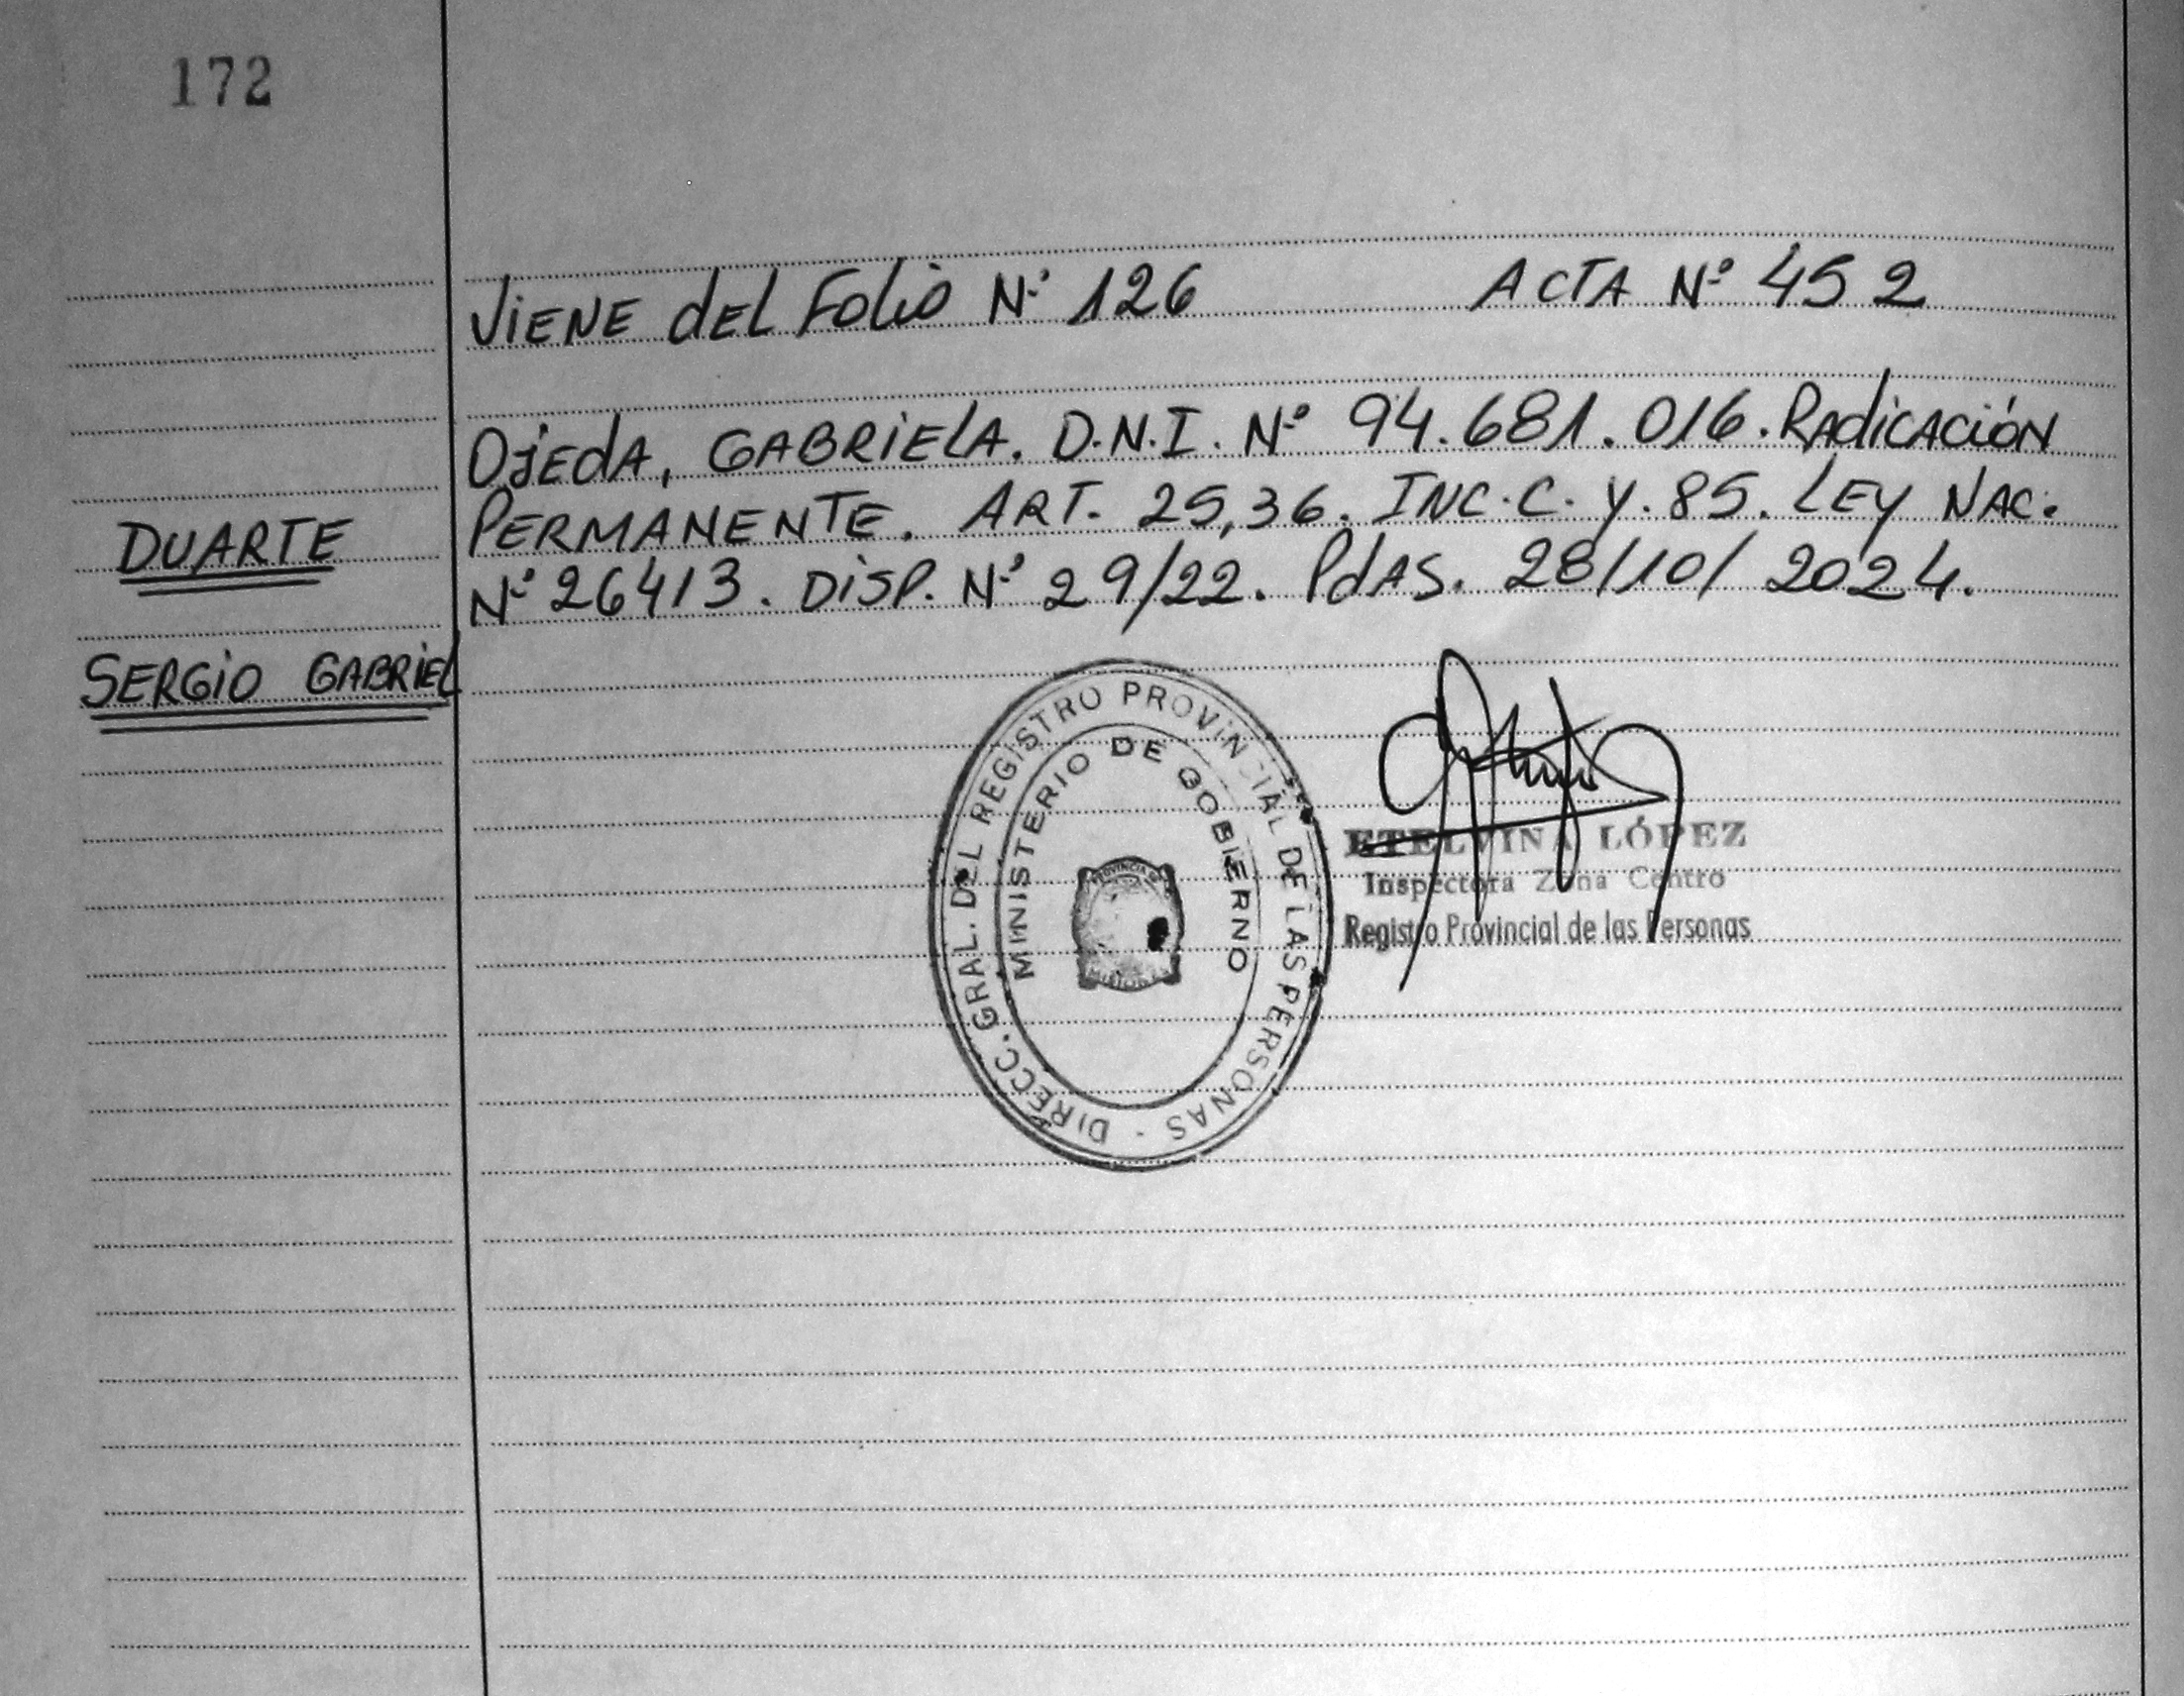 172
VIENE del Folio Nº 126 ACTA Nº 452
OJEDA, GABRIELA. D.N.I. Nº 94.681.016. RADICACIÓN
PERMANENTE. ART. 25,36. INC.C. Y. 85. LEY NAC.
Nº 26413. DISP. Nº 29/22. PdAS. 28/10/2024.
DUARTE
SERGIO GABRIEL
DIRECC. GRAL. DEL REGISTRO PROVINCIAL DE LAS PERSONAS -
MINISTERIO DE GOBIERNO
ETELVINA LÓPEZ
Inspectora Zona Centro
Registro Provincial de las Personas